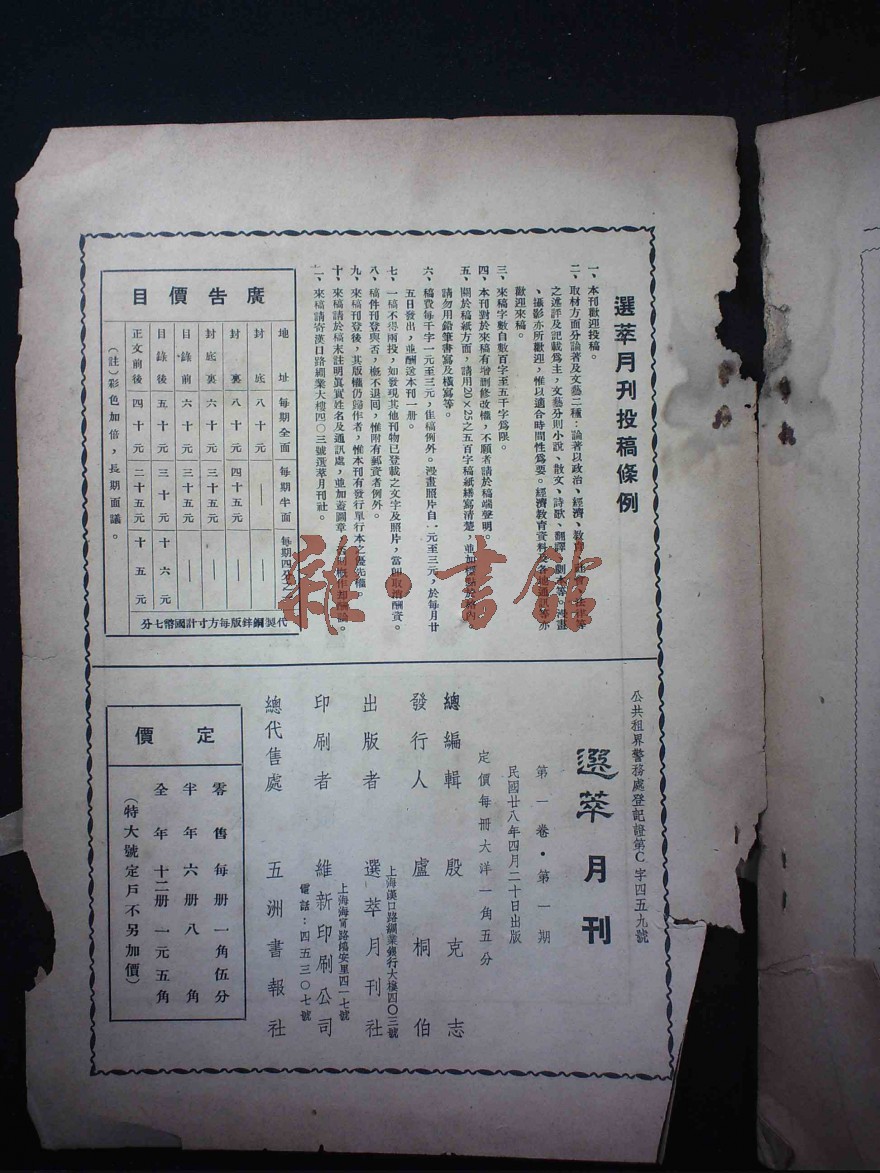 選萃月刊投稿條例
一、本刊歡迎投稿。
二、取材方面分論著及文藝二種:論著以政治、經濟、教育、社會、法律等
之述評及記載爲主,文藝分則小說、散文、詩歌、翻譯、劇本等。漫畫
、攝影亦所歡迎,惟以適合時間性爲要。經濟教育資料及各地通訊等亦
歡迎來稿。
三、來稿字數自數百字至五千字爲限。
四、本刊對於來稿有增删修改權,不願者請於稿端聲明。
五、關於稿紙方面,請用20×25之五百字稿紙繕寫清楚,並加標點於格內。
請勿用鉛筆書寫及橫寫等。
六、稿費每千字一元至三元,佳稿例外。漫畫照片自一元至三元,於每月廿
五日發出,並酬送本刊一册。
七、一稿不得兩投,如發現其他刊物已登載之文字及照片,當卽取消酬資。
八、稿件刊登與否,槪不退囘,惟附有郵資者例外。
九、來稿刊登後,其版權仍歸作者,惟本刊有發行單行本之優先權。
十、來稿請於稿末註明眞實姓名及通訊處,並加蓋圖章,否則概作却酬論。
十一、來稿請寄漢口路綢業大樓四〇三號選萃月刊社。
廣告價目
地址 每期全面 每期半面 每期四分之一
封底 八十元 — —
封裏 八十元 四十五元 —
封底裏 六十元 三十五元 —
目錄前 六十元 三十五元 —
目錄後 五十元 三十元 十六元
正文前後 四十元 二十五元 十五元
(註)彩色加倍,長期面議。
代製銅鋅版每方寸計國幣七分
公共租界警務處登記證第C字四五九號
選萃月刊
第一卷・第一期
民國廿八年四月二十日出版
定價每册大洋一角五分
總編輯 殷克志
發行人 盧桐伯
上海漢口路綢業銀行大樓四〇三號
出版者 選萃月刊社
上海海甯路鴻安里四一七號
印刷者 維新印刷公司
電話:四五三〇七號
總代售處 五洲書報社
定價
零售每册一角伍分
半年六册八角
全年十二册一元五角
(特大號定戶不另加價)
雜·書館